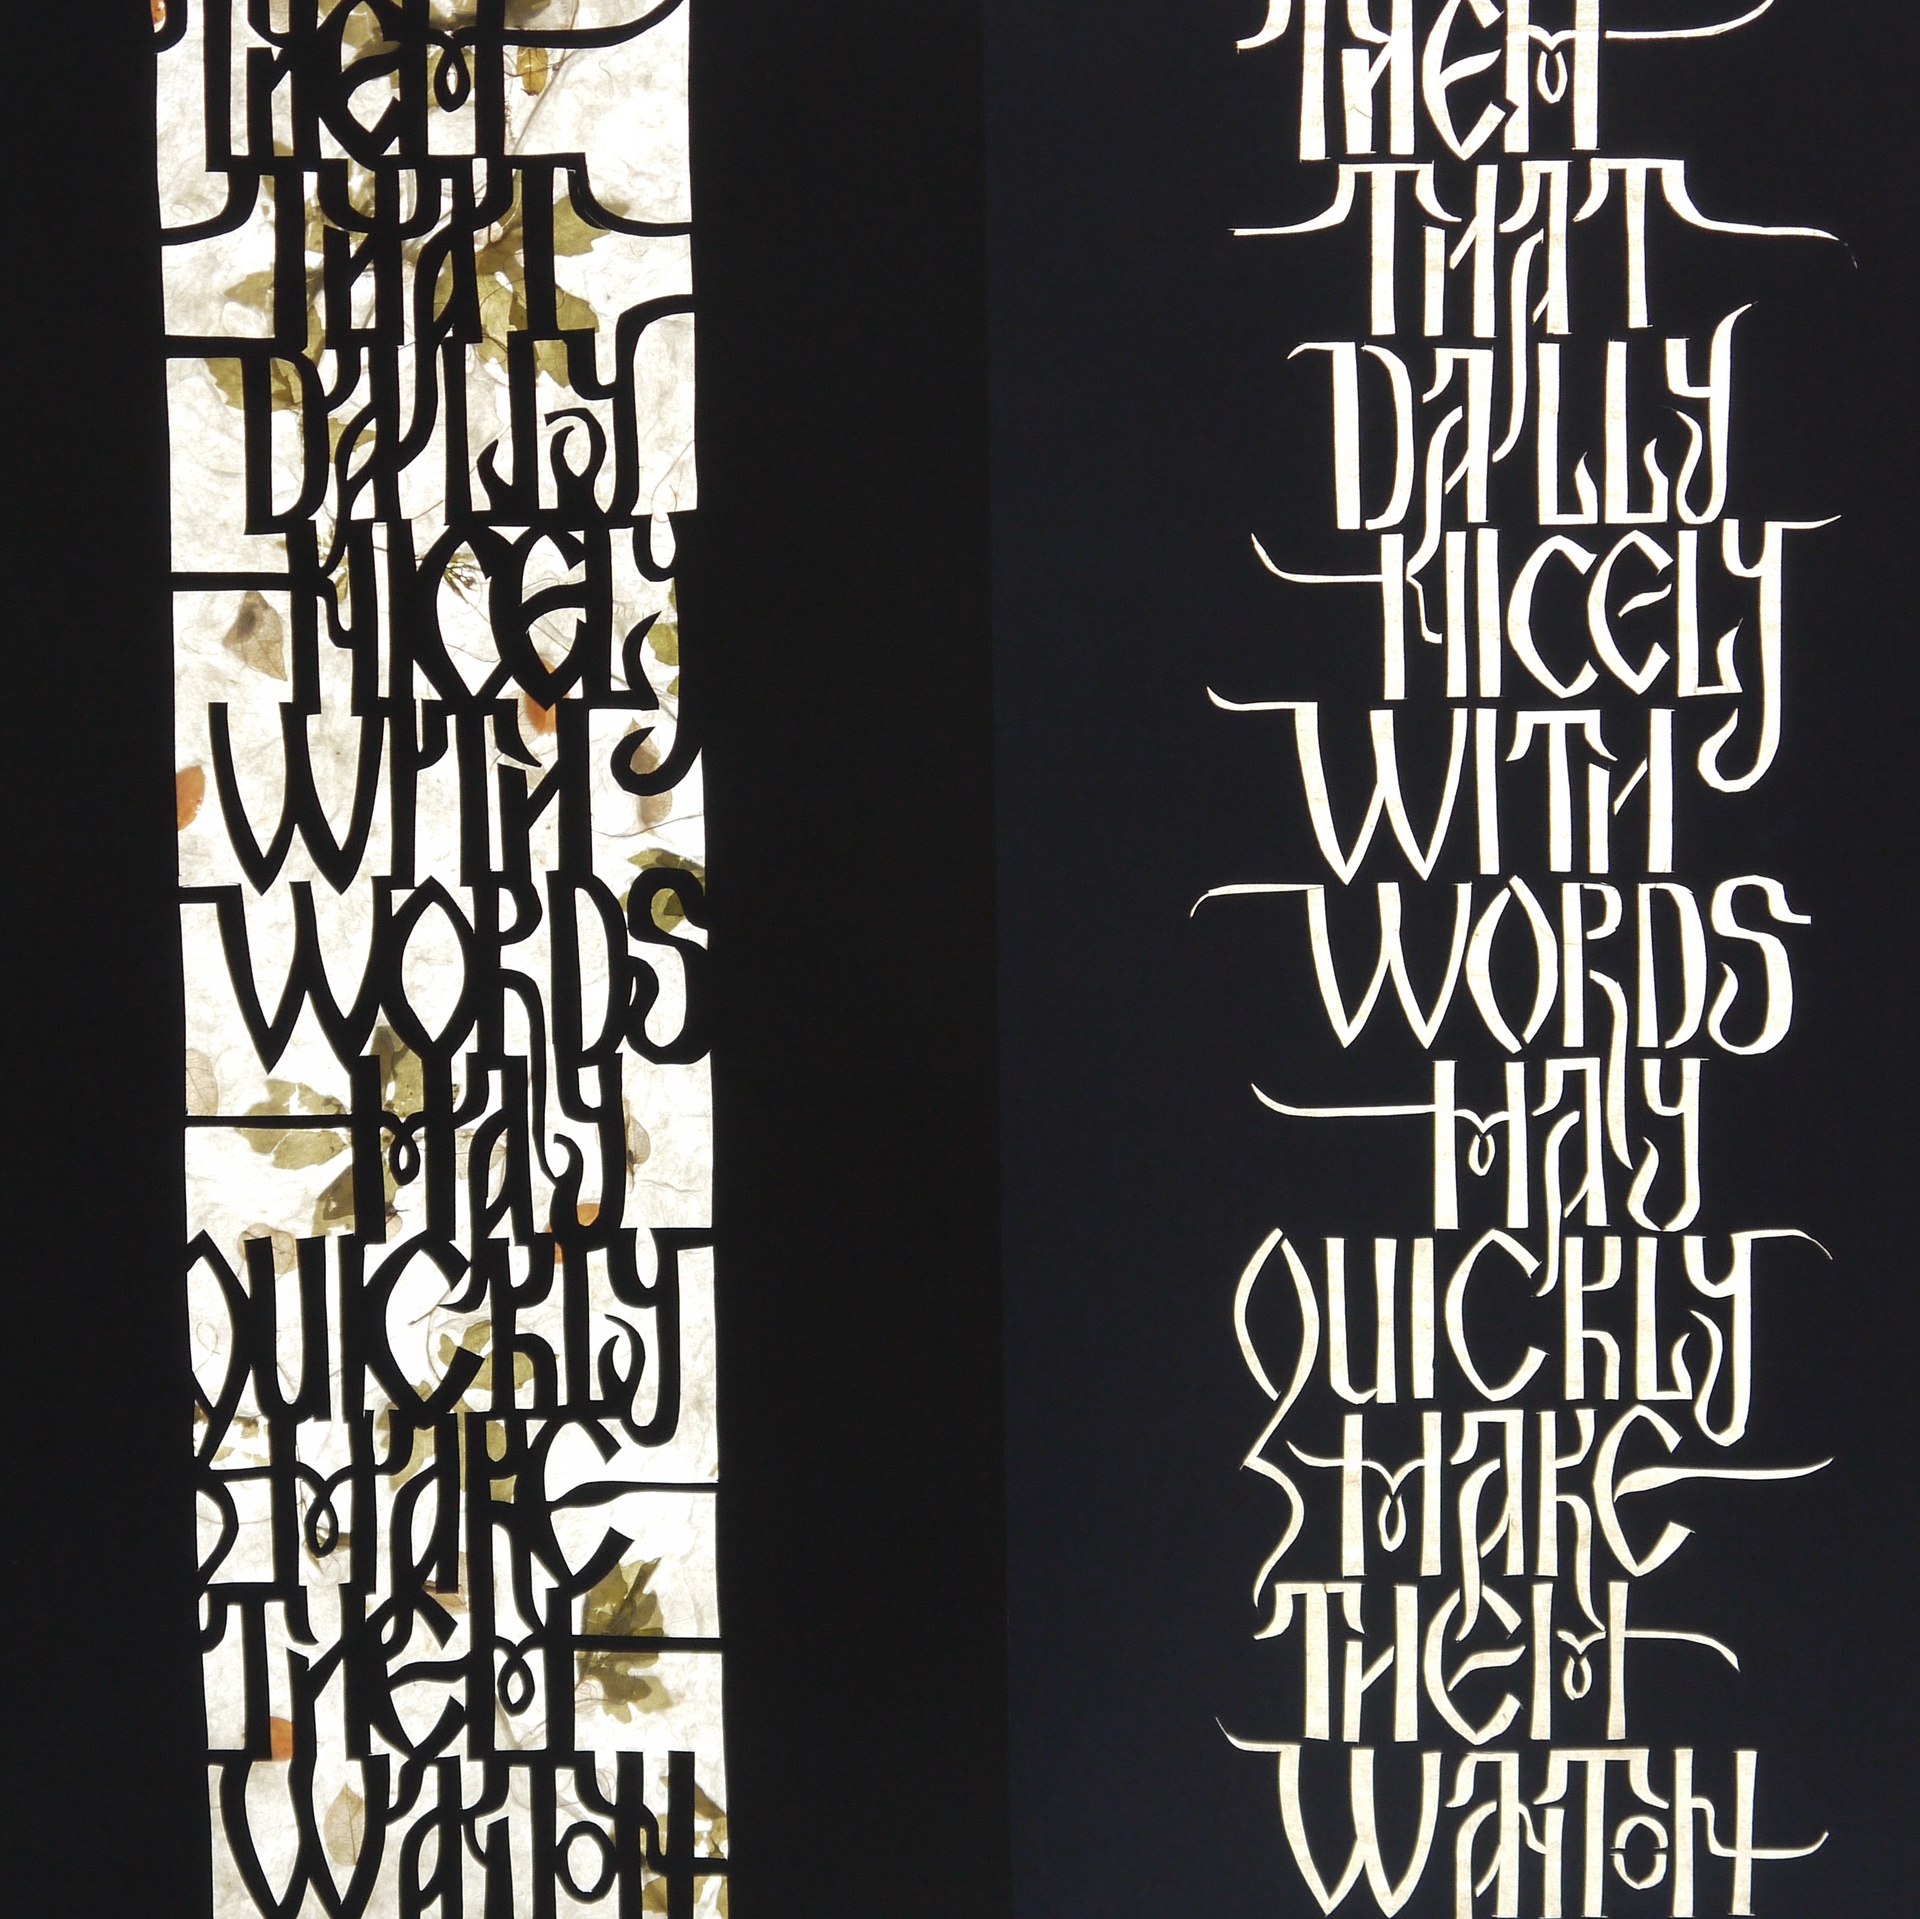 THEM
THAT
DALLY
NICELY
WITH
WORDS
MAY
QUICKLY
MAKE
THEM
WANTON
THEM
THAT
DALLY
NICELY
WITH
WORDS
MAY
QUICKLY
MAKE
THEM
WANTON